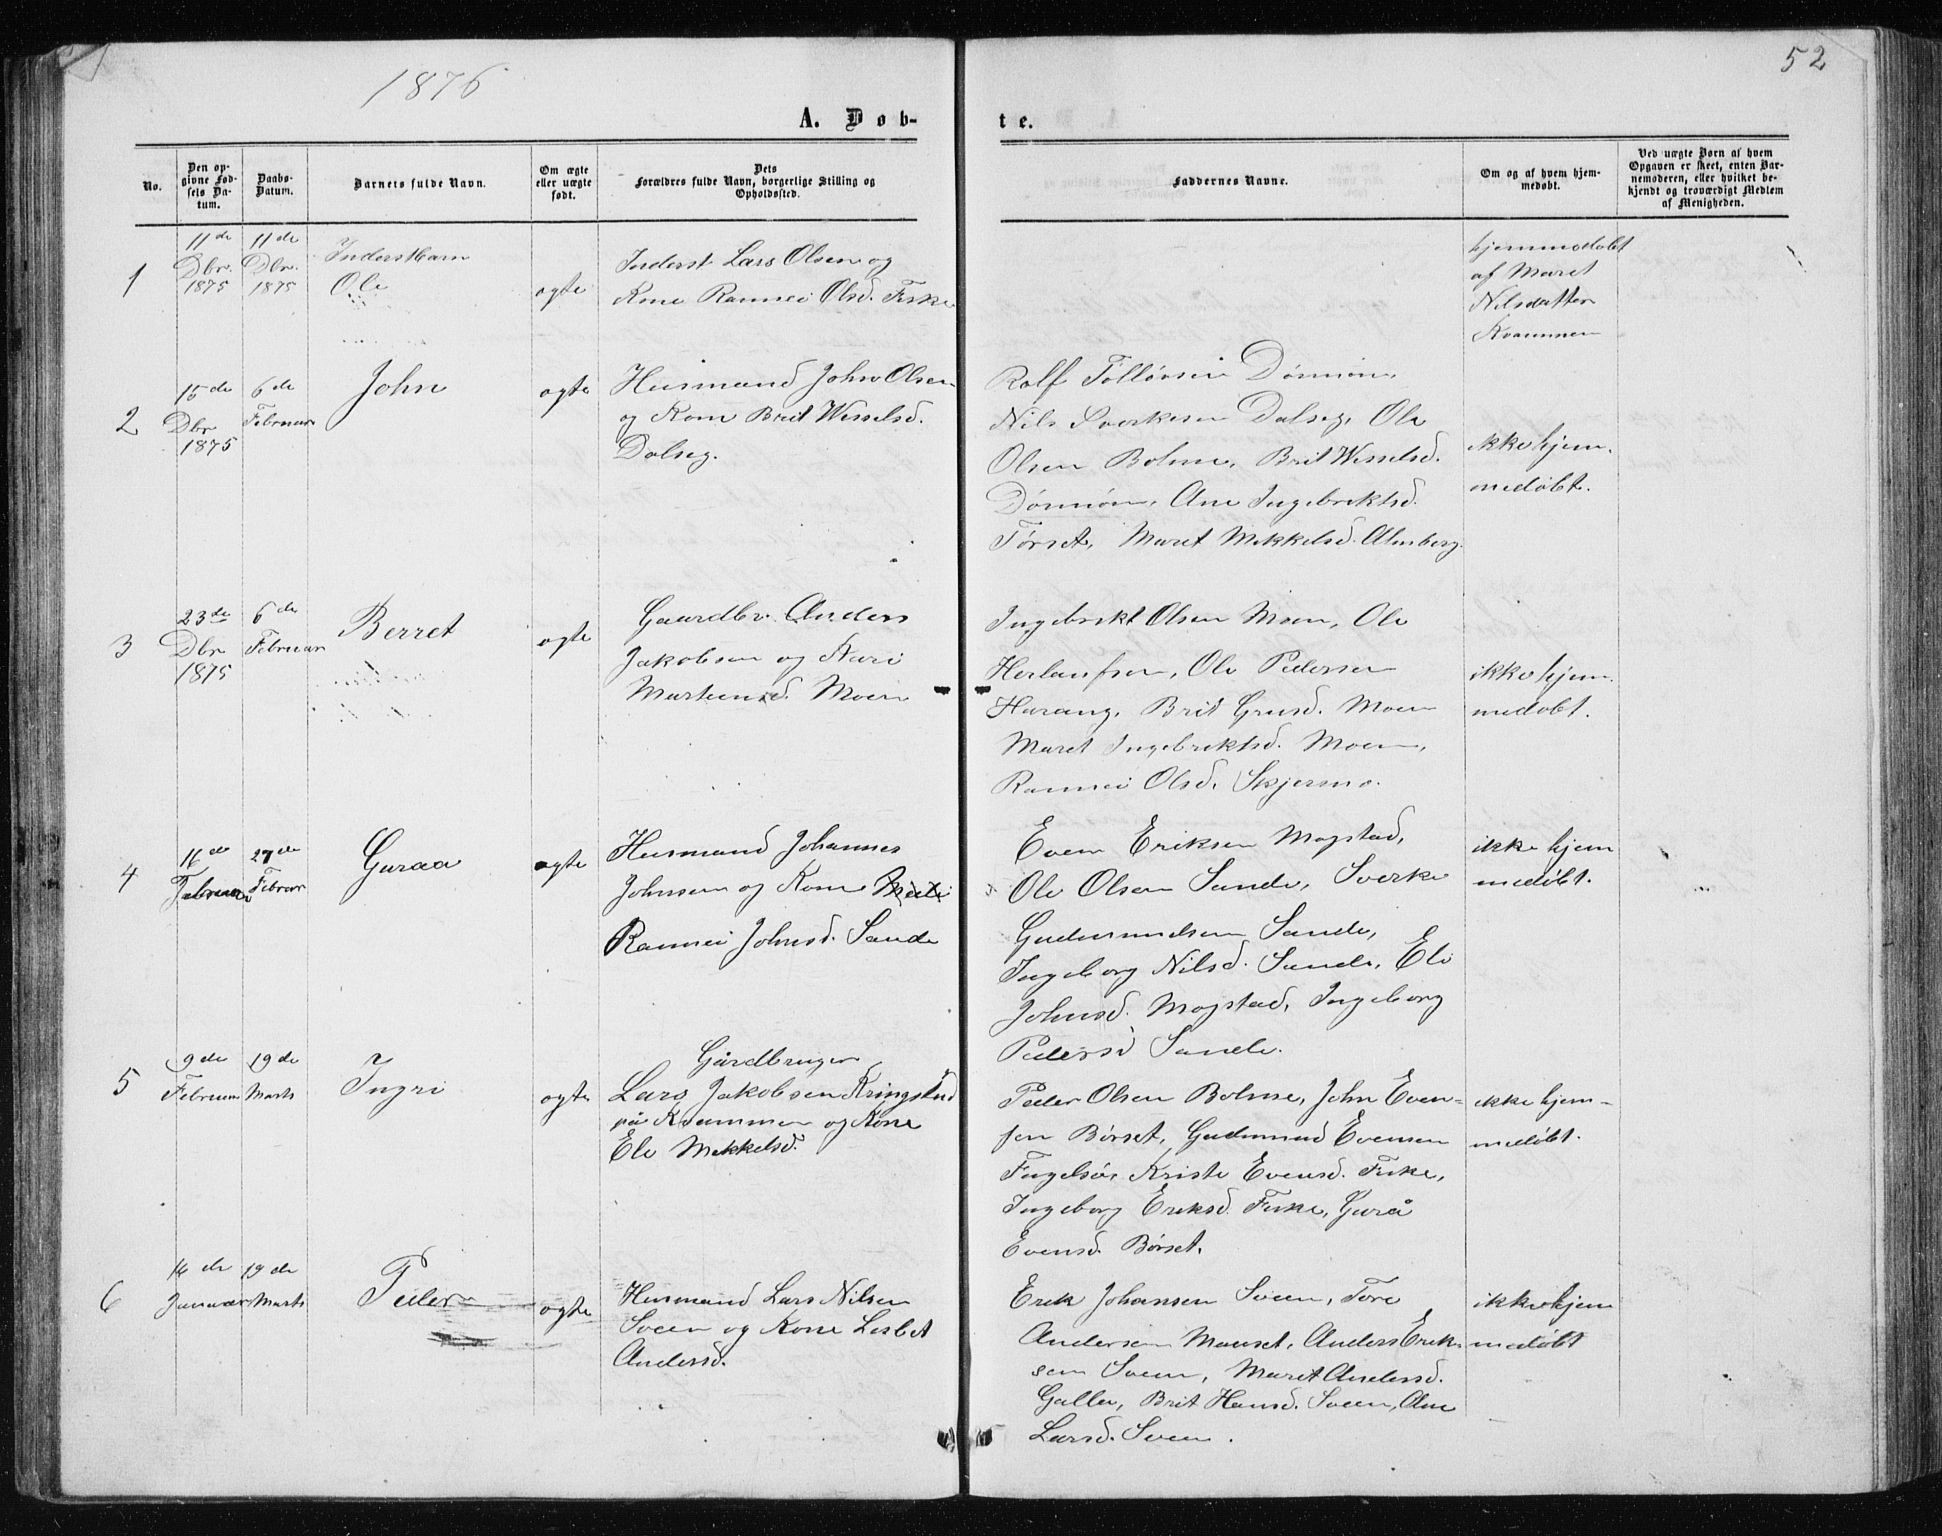 1876
52
A. Døb-
te.
No.
Den op-
givne Fød-
sels Da-
tum.
Daabs-
Datum.
Barnets fulde Navn.
Om ægte
eller uægte
født.
Dets
Forældres fulde Navn, borgerlige Stilling og
Opholdssted.
Faddernes Navne.
Om og af hvem hjem-
medøbt.
Ved uægte Børn af hvem
Opgaven er skeet, enten Bar-
nemoderen, eller hvilket be-
kjendt og troværdigt Medlem
af Menigheden.
1
11de
Dbr.
1875
11de
Dbr.
1875
Inderstbarn
Ole
ægte
Inderst Lars Olsen og
Kone Rannei Olsd. Fiske
hjemmedøbt
af Maret
Nilsdatter
Kvammen
2
15de
Dbr
1875
6de
Februar
John
ægte
Husmand John Olsen
og Kone Brit Wesselsd.
Dalseg.
Rolf Tolløvsen Dønnion,
Nils Sverkesen Dalseg, Ole
Olsen Bolme, Brit Wesselsd.
Dønnion, Ane Ingebriktsd.
Tørset, Maret Mekkelsd. Almberg.
ikke hjem.
medøbt.
3
23de
Dbr
1875
6de
Februar
Berret
ægte
Gaardbr. Anders
Jakobsen og Kari
Martensd. Moen
Ingebrikt Olsen Moen, Ole
Herlaufsen, Ole Pedersen
Harang, Brit Grusd. Moen
Maret Ingebriktsd. Moen,
Rannei Olsd. Skjermo.
ikke hjem.
medøbt.
4
16de
Februar
27de
Februar
Guraa
ægte
Husmand Johannes
Johnsen og Kone
Rannei Johnsd. Sande
Even Eriksen Mogstad,
Ole Olsen Sande, Sverke
Gudmundsen Sande,
Ingeborg Nilsd. Sande, Eli
Johnsd. Mogstad, Ingeborg
Pedersd Sande.
ikke hjem
medøbt.
5
9de
Februar
19de
Marts
Ingri
ægte
Gårdbruger
Lars Jakobsen Kringslud
på Kvammen og Kone
Eli Mekkelsd.
Peder Olsen Bolme, John Even-
sen Børset, Gudmund Evensen
Fugelsøi, Kristi Evensd. Fiske,
Ingeborg Eriksd. Fiske, Gurå
Evensd. Børset.
ikke hjem-
medøbt.
6
16de
Januar
19de
Marts
Peder
ægte
Husmand Lars Nilsen
Sveen og Kone Lisbet
Andersd.
Erik Johansen Sveen, Tore
Andersen Mauset, Anders Erik-
sen Sveen, Maret Andersd.
Galler, Brit Hansd. Sveen, Ane
Larsd. Sveen.
ikke hjem
medøbt